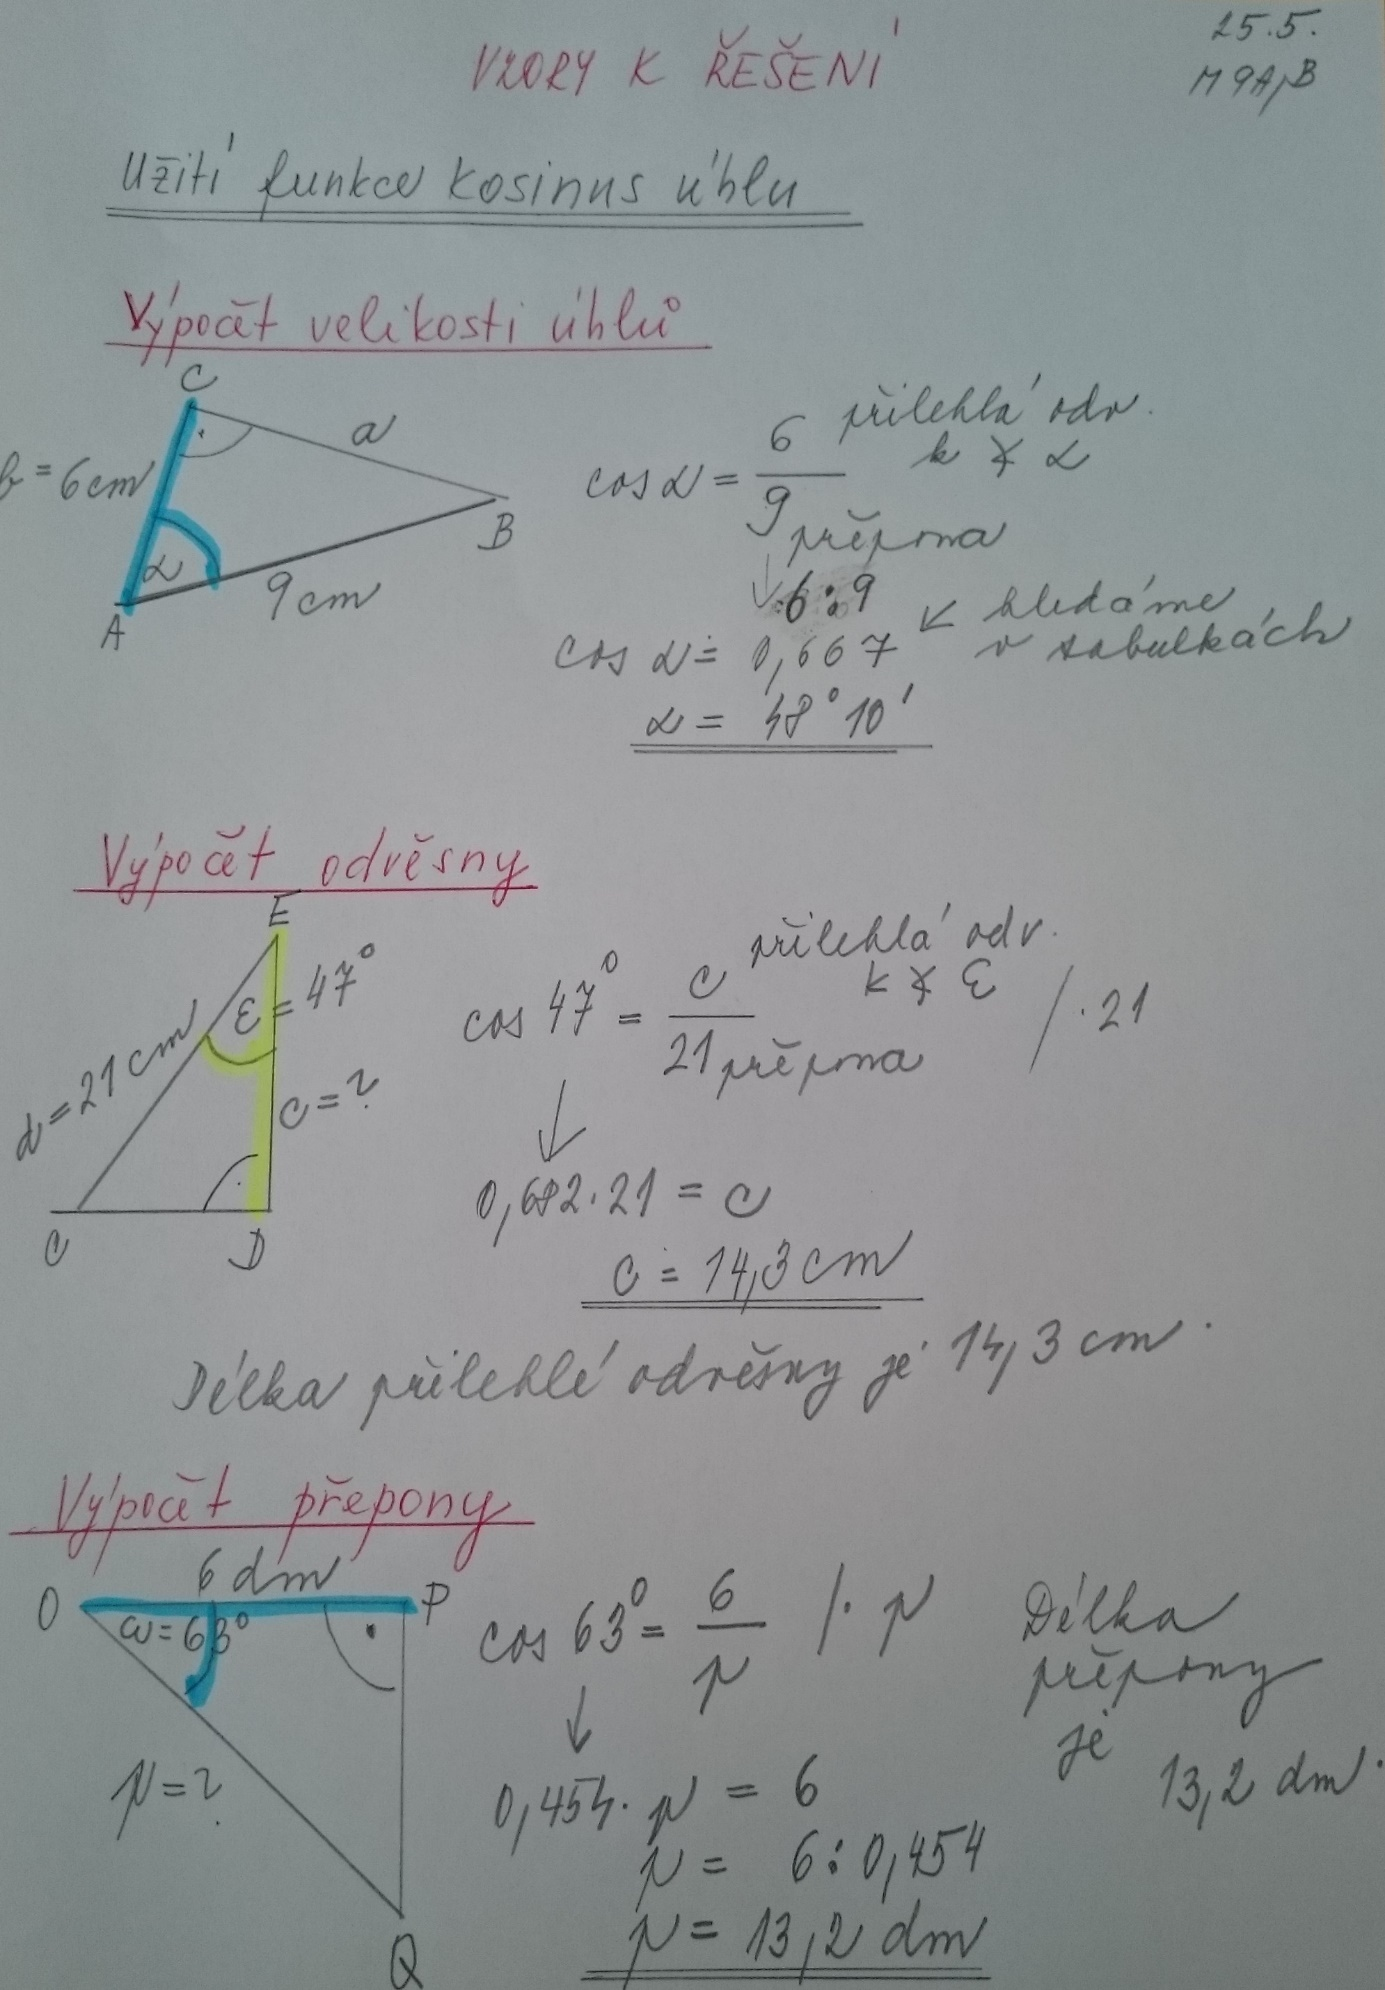 25.5.
M 9A,B
VZORY K ŘEŠENÍ
Užití funkce kosinus úhlu
Výpočet velikosti úhlů
C
b = 6cm
a
B
α
9cm
A
cos α = 6/9
přilehlá odv.
k ∢ α
přepona
↓ 6:9
cos α ≐ 0,667 ← hledáme
v tabulkách
α = 48°10'
Výpočet odvěsny
E
ε = 47°
d = 21cm
c = ?
C
D
cos 47° = c/21 /·21
přilehlá odv.
k ∢ ε
přepona
↓
0,682·21 = c
c ≐ 14,3cm
Délka přilehlé odvěsny je 14,3 cm.
Výpočet přepony
6 dm
O
P
ω=63°
p = ?
Q
cos 63° = 6/p /· p
↓
0,454· p = 6
p = 6:0,454
p = 13,2 dm
Délka
přepony
je
13,2 dm.